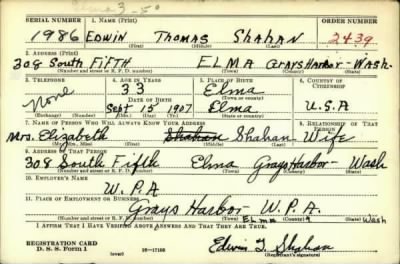 Elma 3-5°
SERIAL NUMBER 1. NAME (Print) ORDER NUMBER
1986 EDWIN THOMAS SHAHAN 2439
(First) (Middle) (Last)
2. ADDRESS (Print)
308 SOUTH FIFTH ELMA GRAYS HARBOR - WASH.
(Number and street or R. F. D. number) (Town) (County) (State)
3. TELEPHONE 4. AGE IN YEARS 5. PLACE OF BIRTH 6. COUNTRY OF CITIZENSHIP
None 33 Elma
DATE OF BIRTH (Town or county)
Sept 15 1907 Elma U.S.A
(Exchange) (Number) (Mo.) (Day) (Yr.) (State or country)
7. NAME OF PERSON WHO WILL ALWAYS KNOW YOUR ADDRESS 8. RELATIONSHIP OF THAT PERSON
Mrs. Elizabeth Shahan Shahan Wife
(Mr., Mrs., Miss) (First) (Middle) (Last)
9. ADDRESS OF THAT PERSON
308 South Fifth Elma Grays Harbor - Wash
(Number and street or R. F. D. number) (Town) (County) (State)
10. EMPLOYER'S NAME
W.P.A
11. PLACE OF EMPLOYMENT OR BUSINESS
Grays Harbor W.P.A. Elma Wash
(Number and street or R. F. D. number) (Town) (County) (State)
I AFFIRM THAT I HAVE VERIFIED ABOVE ANSWERS AND THAT THEY ARE TRUE.
REGISTRATION CARD
D. S. S. Form 1 (over) 16-17105 Edwin T. Shahan
(Registrant's signature)